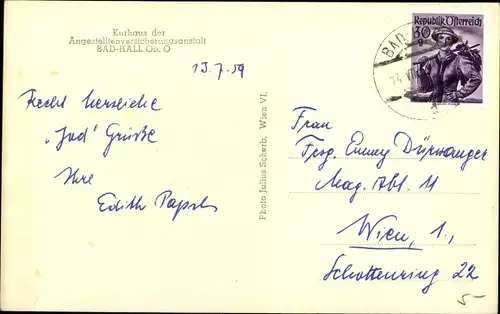 Kurhaus der
Angestelltenversicherungsanstalt
BAD-HALL Ob. Ö
13.7.59
Recht herzliche
"Jod" Grüße
Ihre
Edith
Photo Julius Scherb, Wien VI.
30 g
Republik Österreich
BAD-
14. VII.
Frau
Emmy
Mag. Abt. 11
Wien, 1.,
Schottenring 22
5-